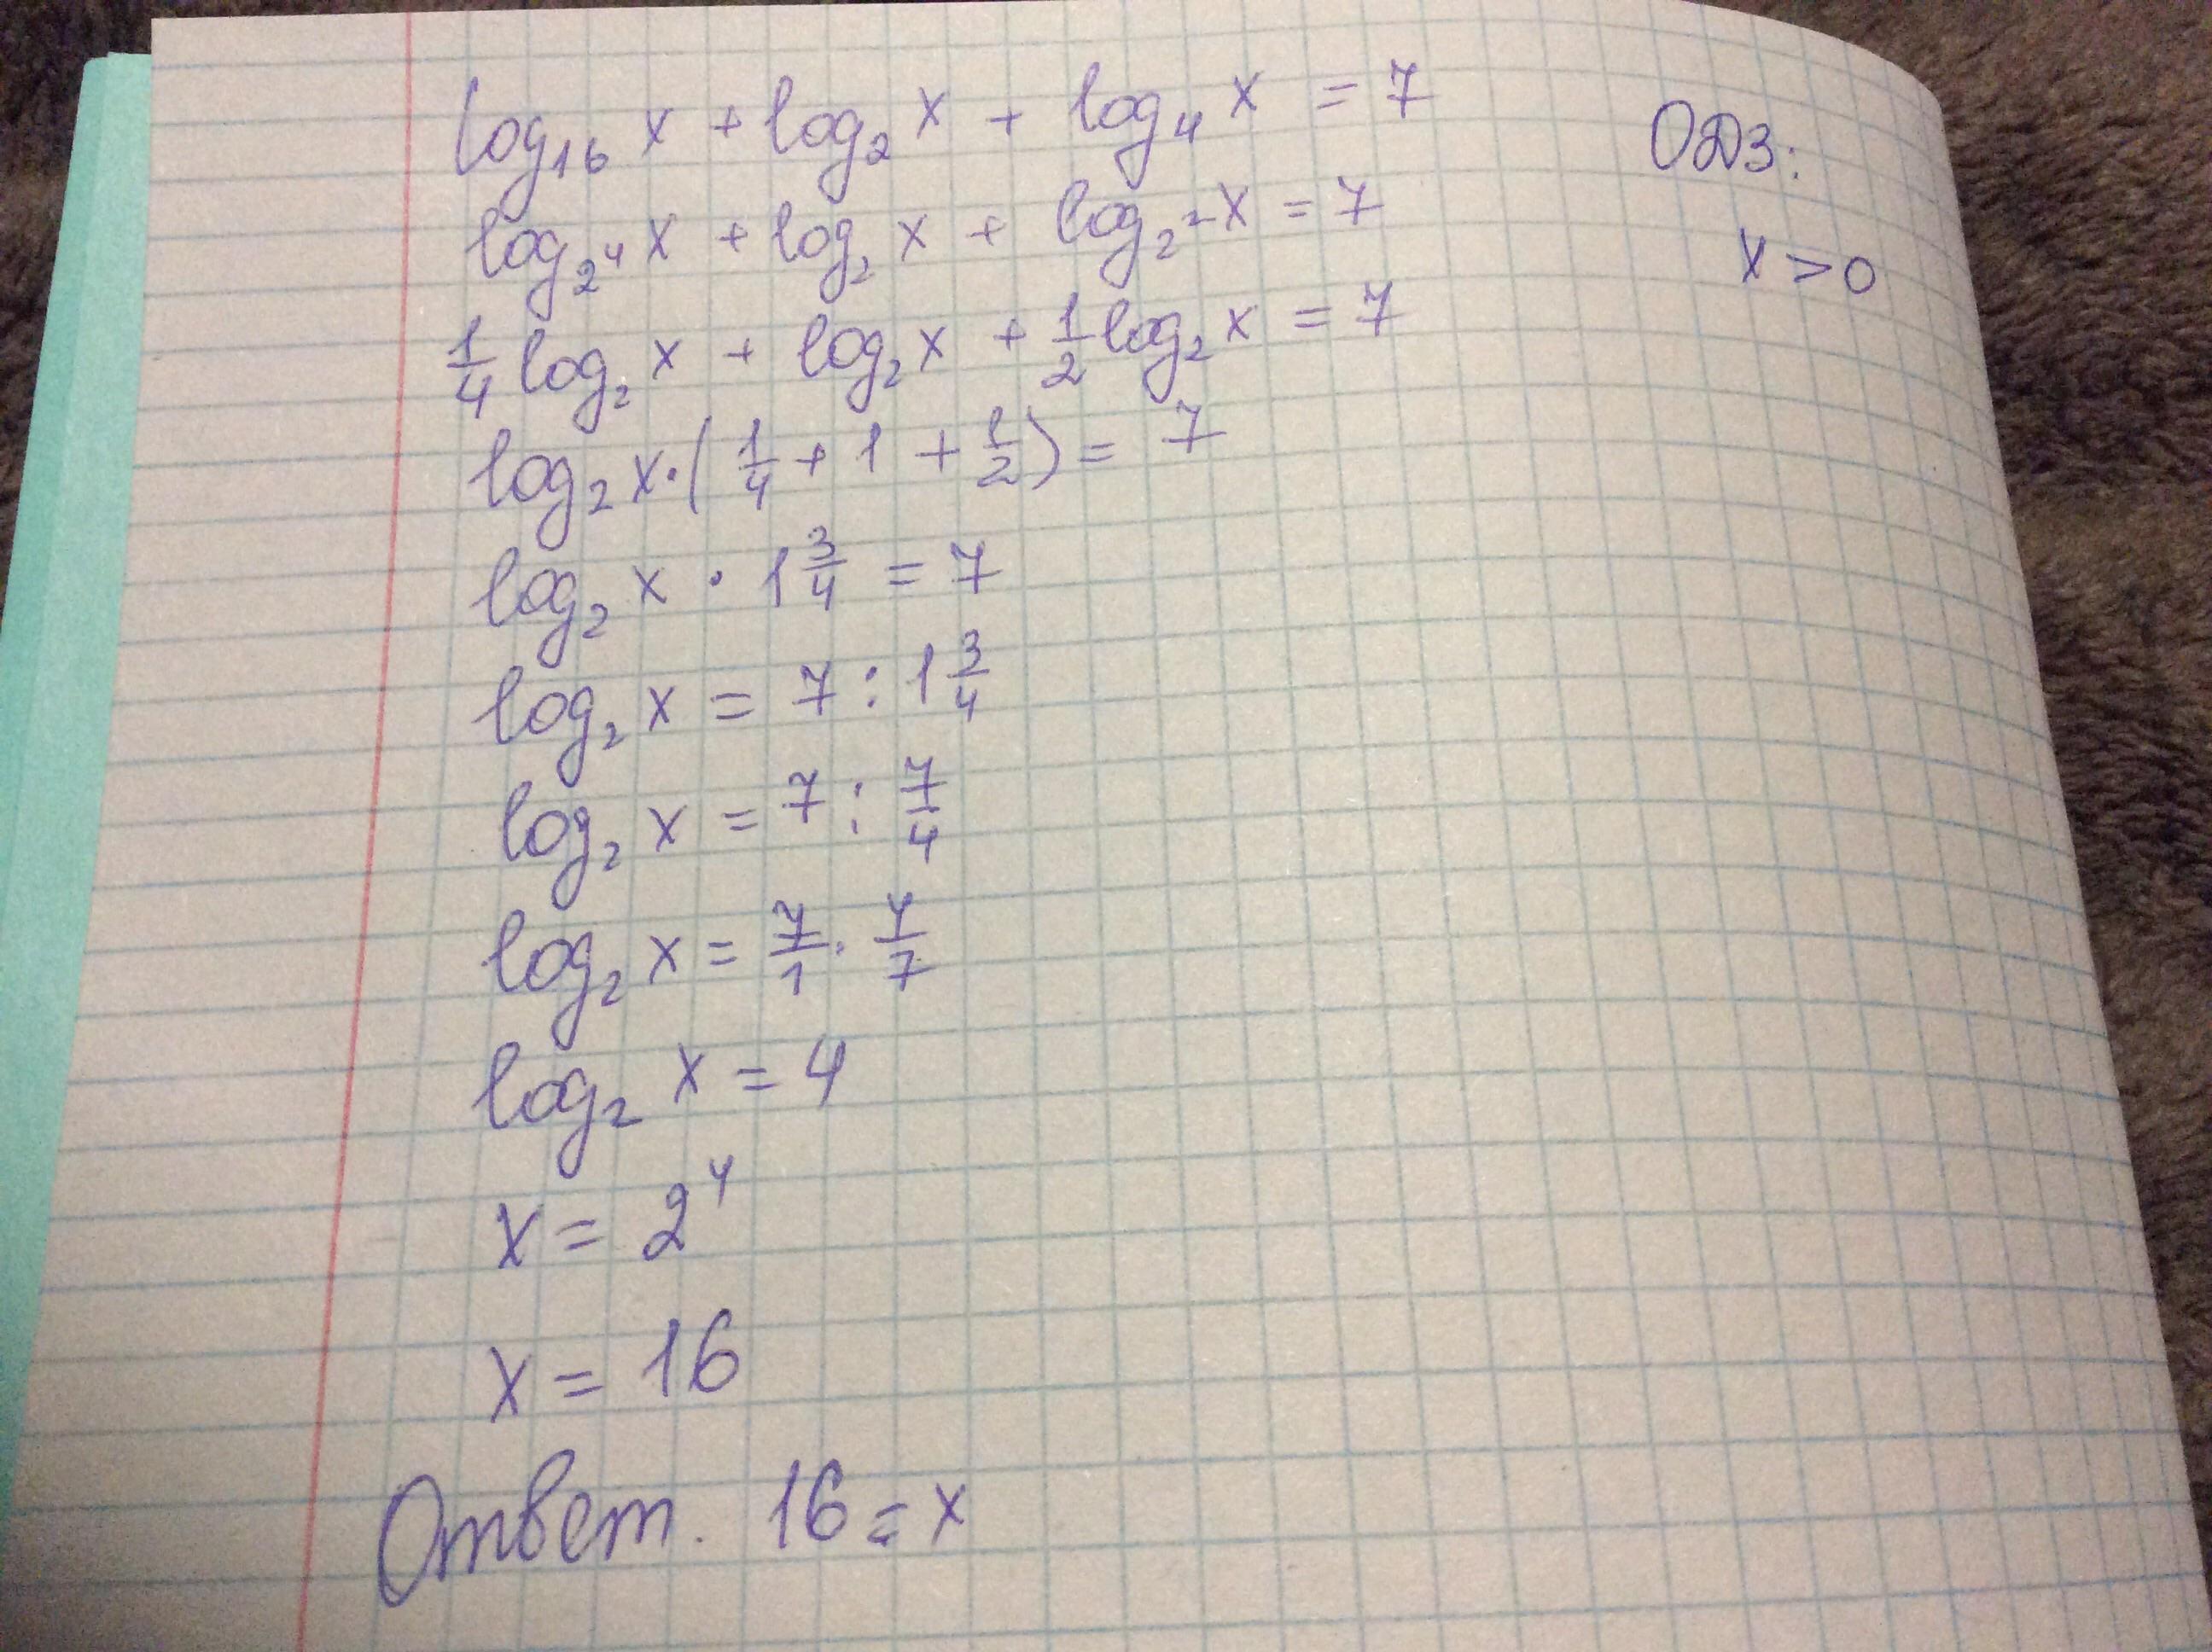 log₁₆ x + log₂ x + log₄ x = 7
ОДЗ:
log₂⁴ x + log₂ x + log₂² x = 7
x > 0
1/4 log₂ x + log₂ x + 1/2 log₂ x = 7
log₂ x · (1/4 + 1 + 1/2) = 7
log₂ x · 1 3/4 = 7
log₂ x = 7 : 1 3/4
log₂ x = 7 : 7/4
log₂ x = 7/1 · 4/7
log₂ x = 4
x = 2⁴
x = 16
Ответ. 16 = x